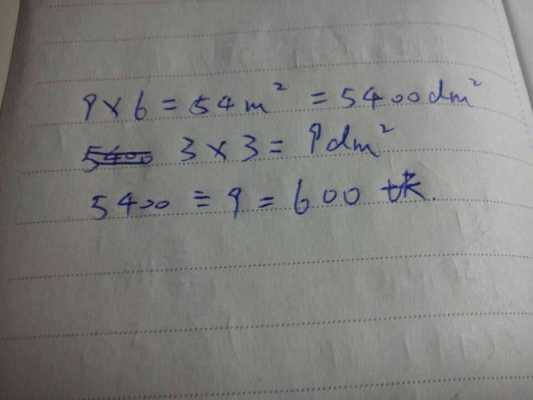 9×6=54m²=5400dm²
3×3=9dm²
5400÷9=600块.